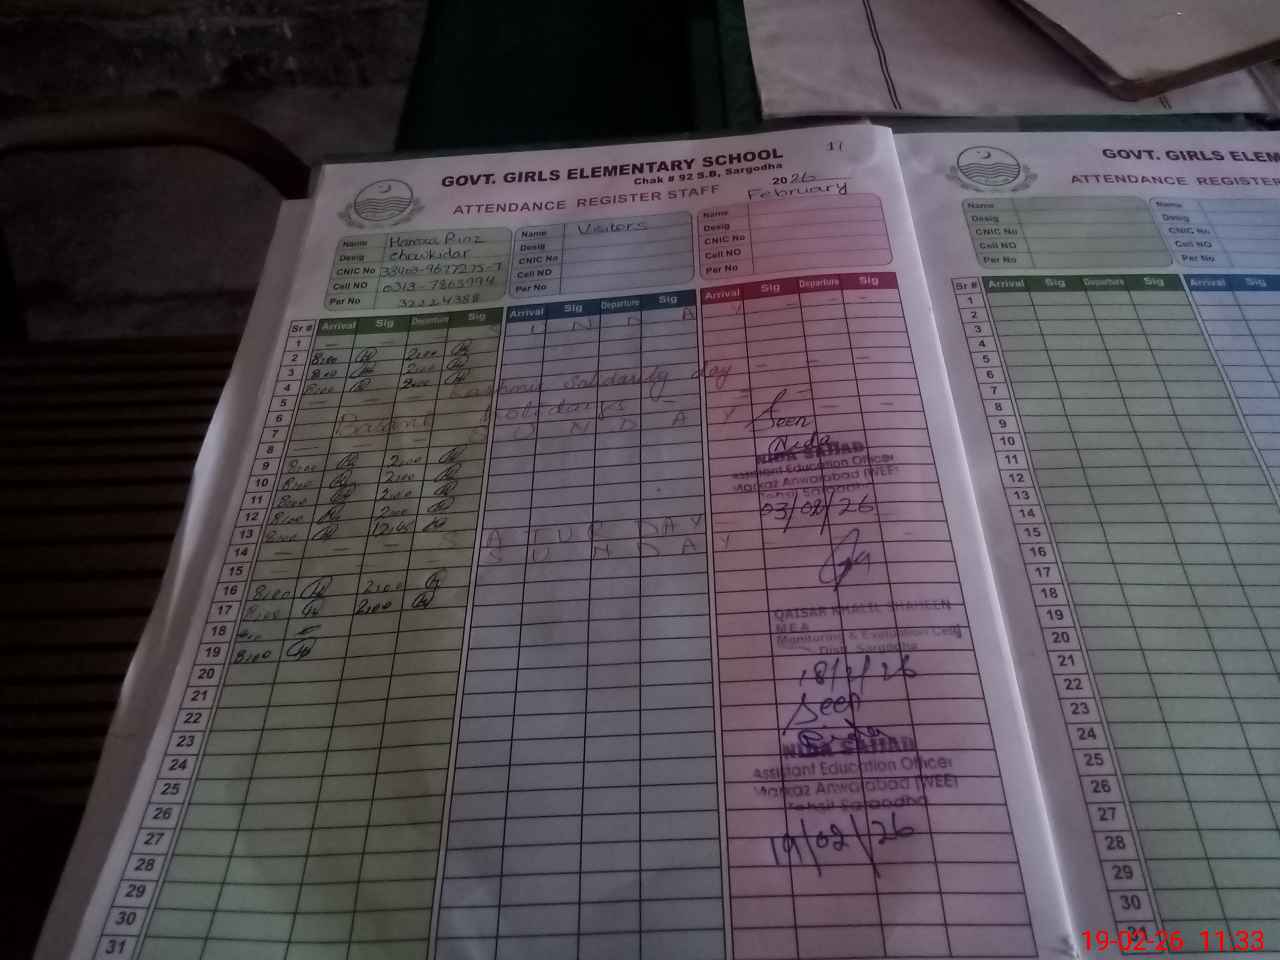 11
GOVT. GIRLS ELEMENTARY SCHOOL
Chak # 92 S.B, Sargodha
ATTENDANCE REGISTER STAFF
2026
February
Name
Desig Chowkidar
CNIC No
Cell NO
Per No 32224388
Name Visitors
Desig
CNIC No
Cell NO
Per No
Name
Desig
CNIC No
Cell NO
Per No
Sr # Arrival Sig Departure Sig Arrival Sig Departure Sig Arrival Sig Departure Sig
1 S U N D A Y
2 8:00 2:00
3 8:00 2:00
4 8:00 2:00
5 Kashmir Solidarity day
6
7 holidays
8 S U N D A Y
9 8:00 2:00
10 8:00 2:00
11 8:00 2:00
12 8:00 2:00
13 8:00
14 S A T U R DAY
15 S U N D A Y
16 8:00 2:00
17 8:00 2:00
18
19 8:00
20
21
22
23
24
25
26
27
28
29
30
31
Seen
Nida
NIDA SAJJAD
Assistant Education Officer
Markaz Anwarabad (WEE)
Tehsil Sargodha
03/02/26
QAISAR KHALIL SHAHEEN
M.E.A
Monitoring & Evaluation Cell
Distt. Sargodha
18/2/26
Seen
NIDA SAJJAD
Assistant Education Officer
Markaz Anwarabad (WEE)
Tehsil Sargodha
19/02/26
GOVT. GIRLS ELEM
ATTENDANCE REGISTER
Name
Desig
CNIC No
Cell NO
Per No
Name
Desig
CNIC No
Cell NO
Per No
Sr # Arrival Sig Departure Sig Arrival Sig
1
2
3
4
5
6
7
8
9
10
11
12
13
14
15
16
17
18
19
20
21
22
23
24
25
26
27
28
29
30
31
19-02-26 11:33